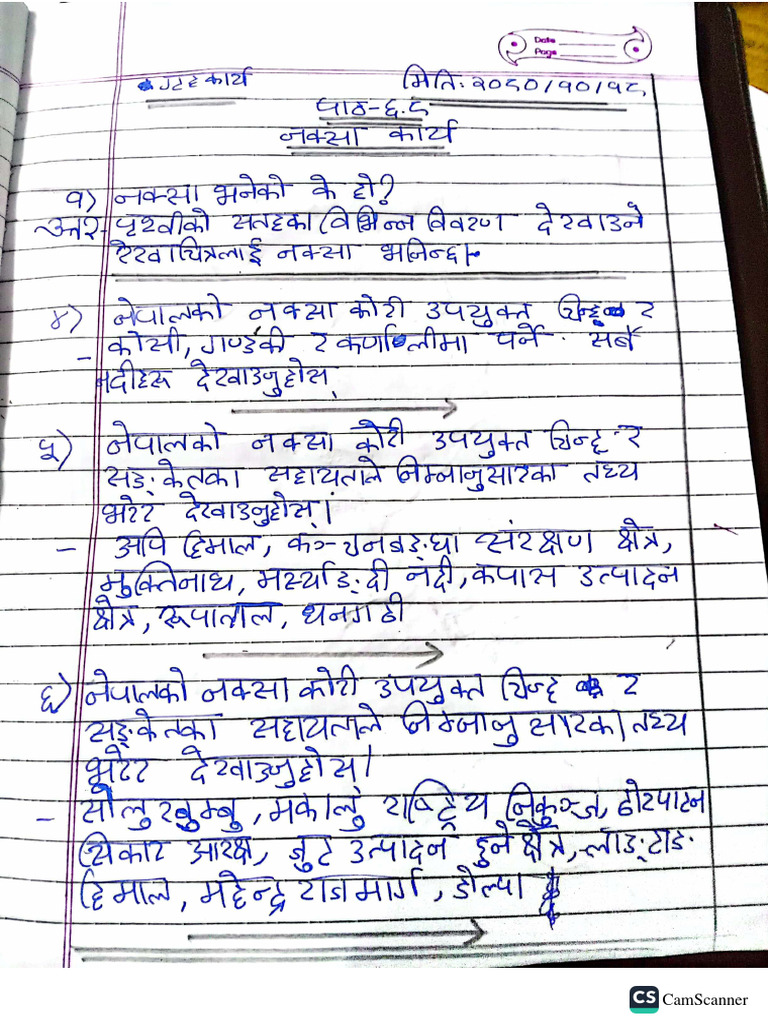 Date
Page
गृहकार्य मिति: २०८०/१०/१८
पाठ-६.८
नक्सा कार्य
१) नक्सा भनेको के हो?
उत्तर- पृथ्वीको सतहका विभिन्न विवरण देखाउने
रेखाचित्रलाई नक्सा भनिन्छ।
४) नेपालको नक्सा कोरी उपयुक्त चिन्ह र
- कोसी, गण्डकी र कर्णालीमा पर्ने सबै
नदीहरू देखाउनुहोस्
५) नेपालको नक्सा कोरी उपयुक्त चिन्ह र
सङ्केतका सहायताले निम्नानुसारका तथ्य
भरेर देखाउनुहोस्।
- अपि हिमाल, कञ्चनजङ्घा संरक्षण क्षेत्र,
मुक्तिनाथ, मर्स्याङ्दी नदी, कपास उत्पादन
क्षेत्र, रूपाताल, धनगढी
६) नेपालको नक्सा कोरी उपयुक्त चिन्ह र
सङ्केतका सहायताले निम्नानुसारका तथ्य
भरेर देखाउनुहोस्।
- सोलुखुम्बु, मकालु राष्ट्रिय निकुञ्ज, ढोरपाटन
सिकार आरक्ष, जुट उत्पादन हुने क्षेत्र, लाङटाङ
हिमाल, महेन्द्र राजमार्ग, डोल्पा
CS CamScanner